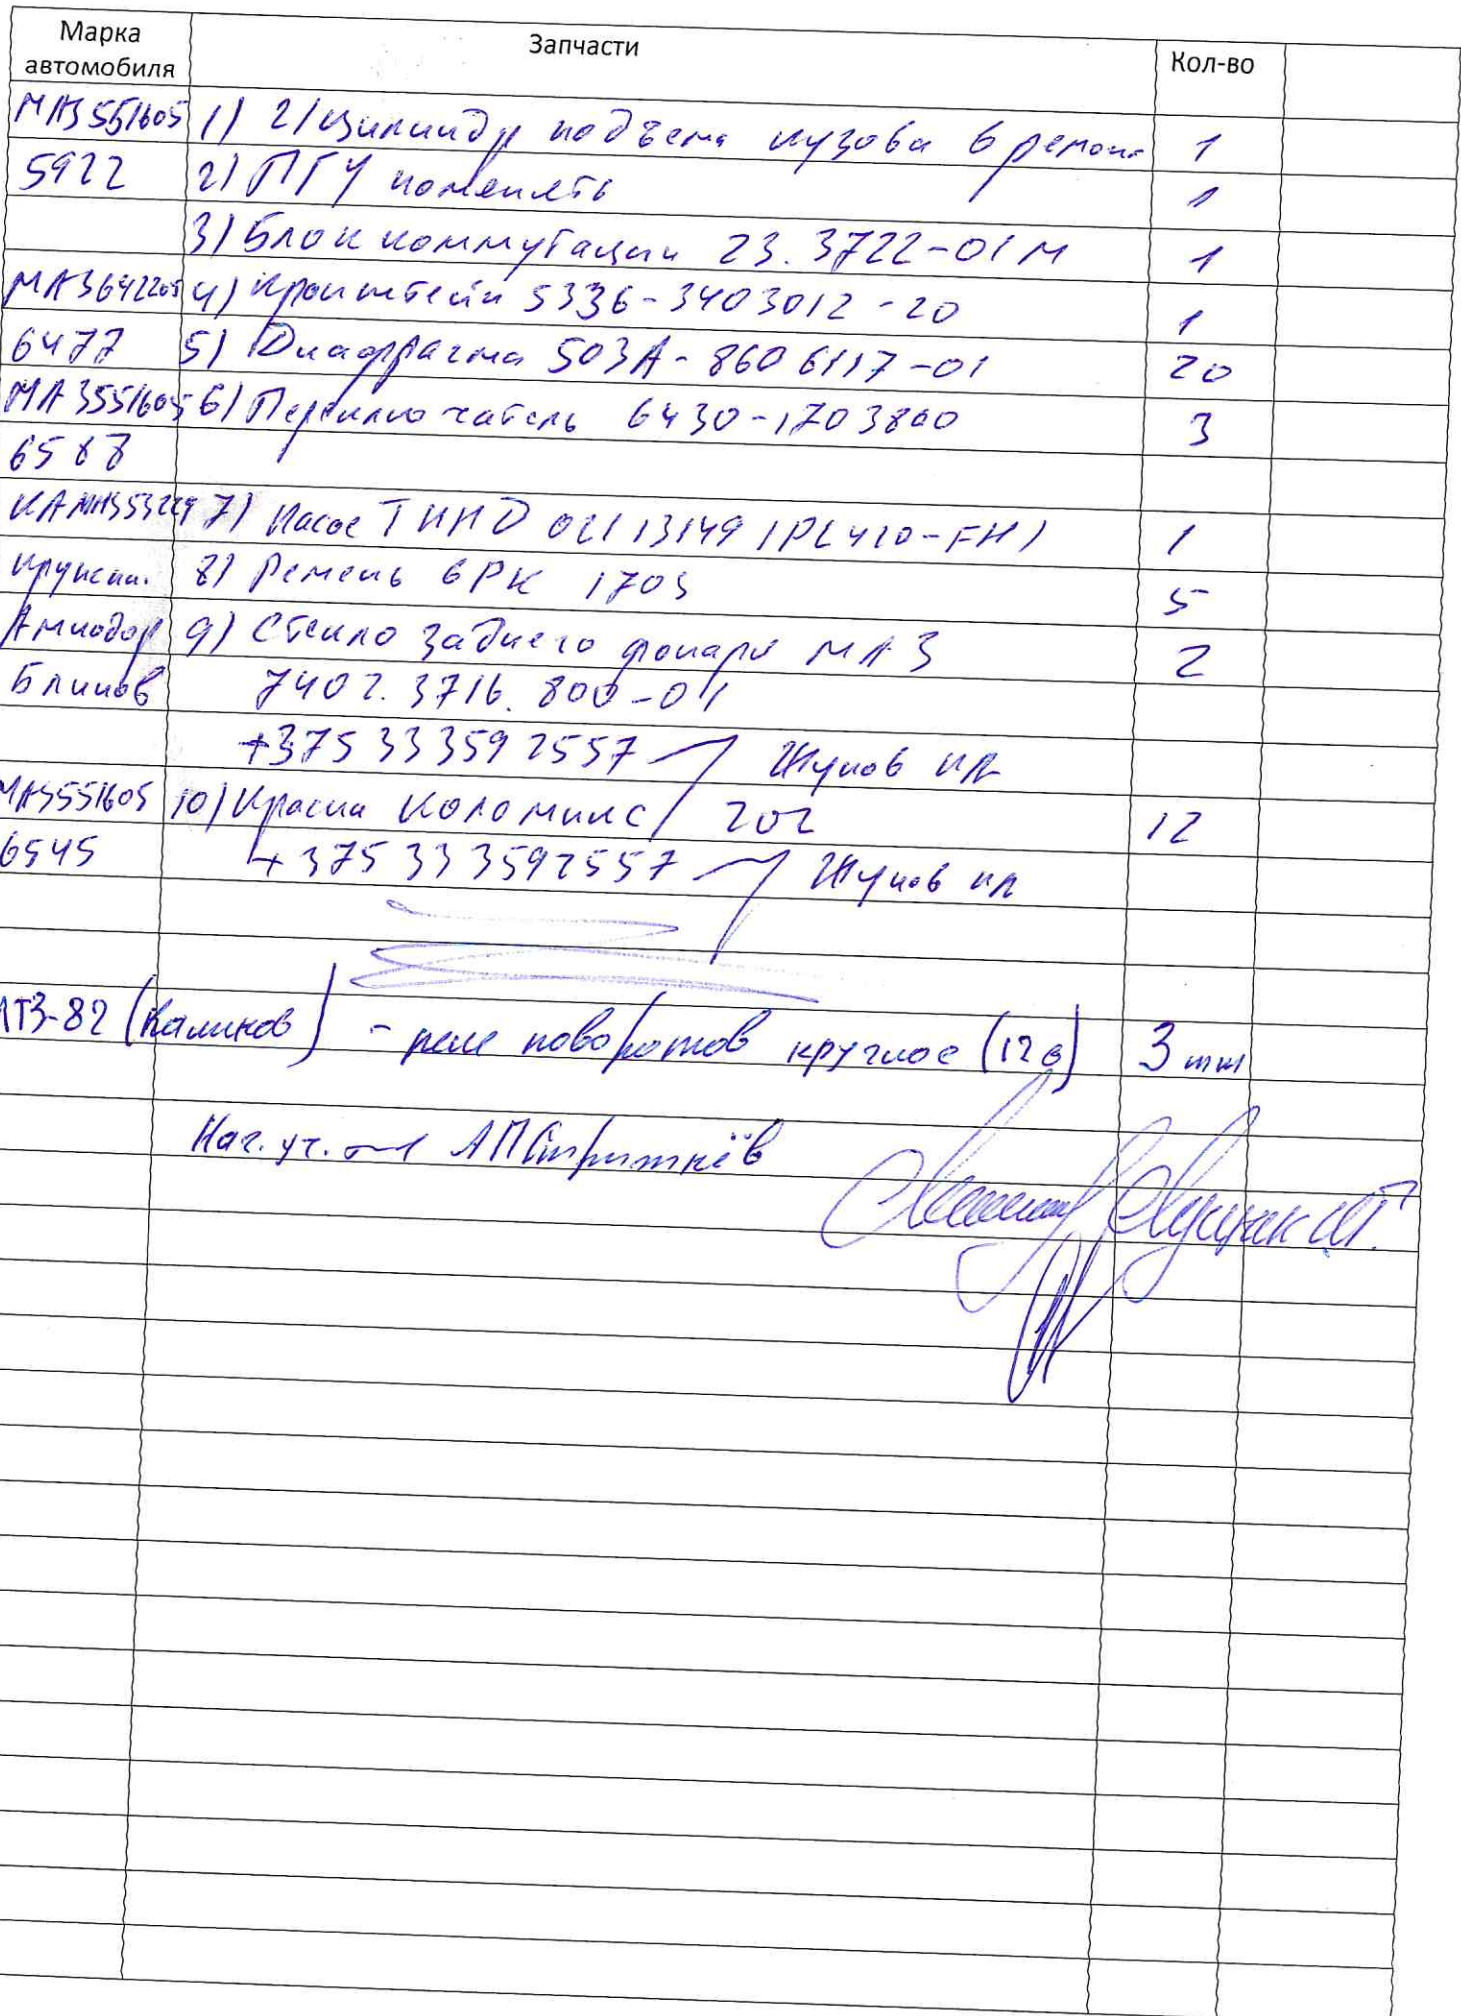 Марка автомобиля Запчасти Кол-во
МАЗ551605 1) г/цилиндр подъема кузова в ремонт 1
5922 2) ПГУ поменять 1
3) Блок коммутации 23.3722-01М 1
МАЗ642205 4) Кронштейн 5336-3403012-20 1
6477 5) Диафрагма 503А-8606117-01 20
МАЗ551605 6) Переключатель 6430-1703800 3
6588
7) Насос ТННД 02113149 1
8) Ремень 6РК 1703 5
Амкодор 9) Стекло заднего фонаря МАЗ 2
Блинов 7402.3716.800-01
+375333592557 Жуков
МАЗ551605 10) Краска Коломикс 202 12
6545 +375333592557 Жуков
МТЗ-82 (Калинов) - реле поворотов круглое (12в) 3 шт
Нач. уч. АП